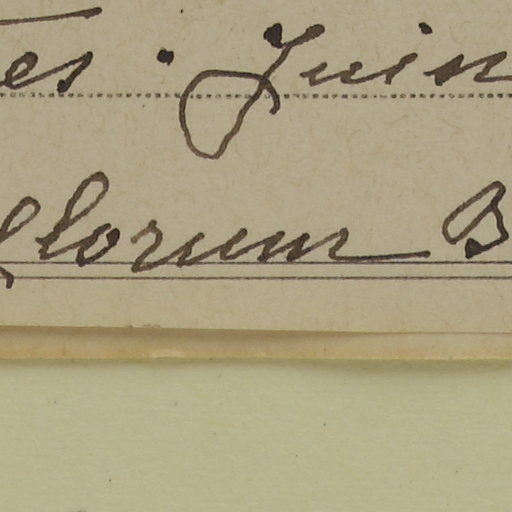 es. Juin
florum B